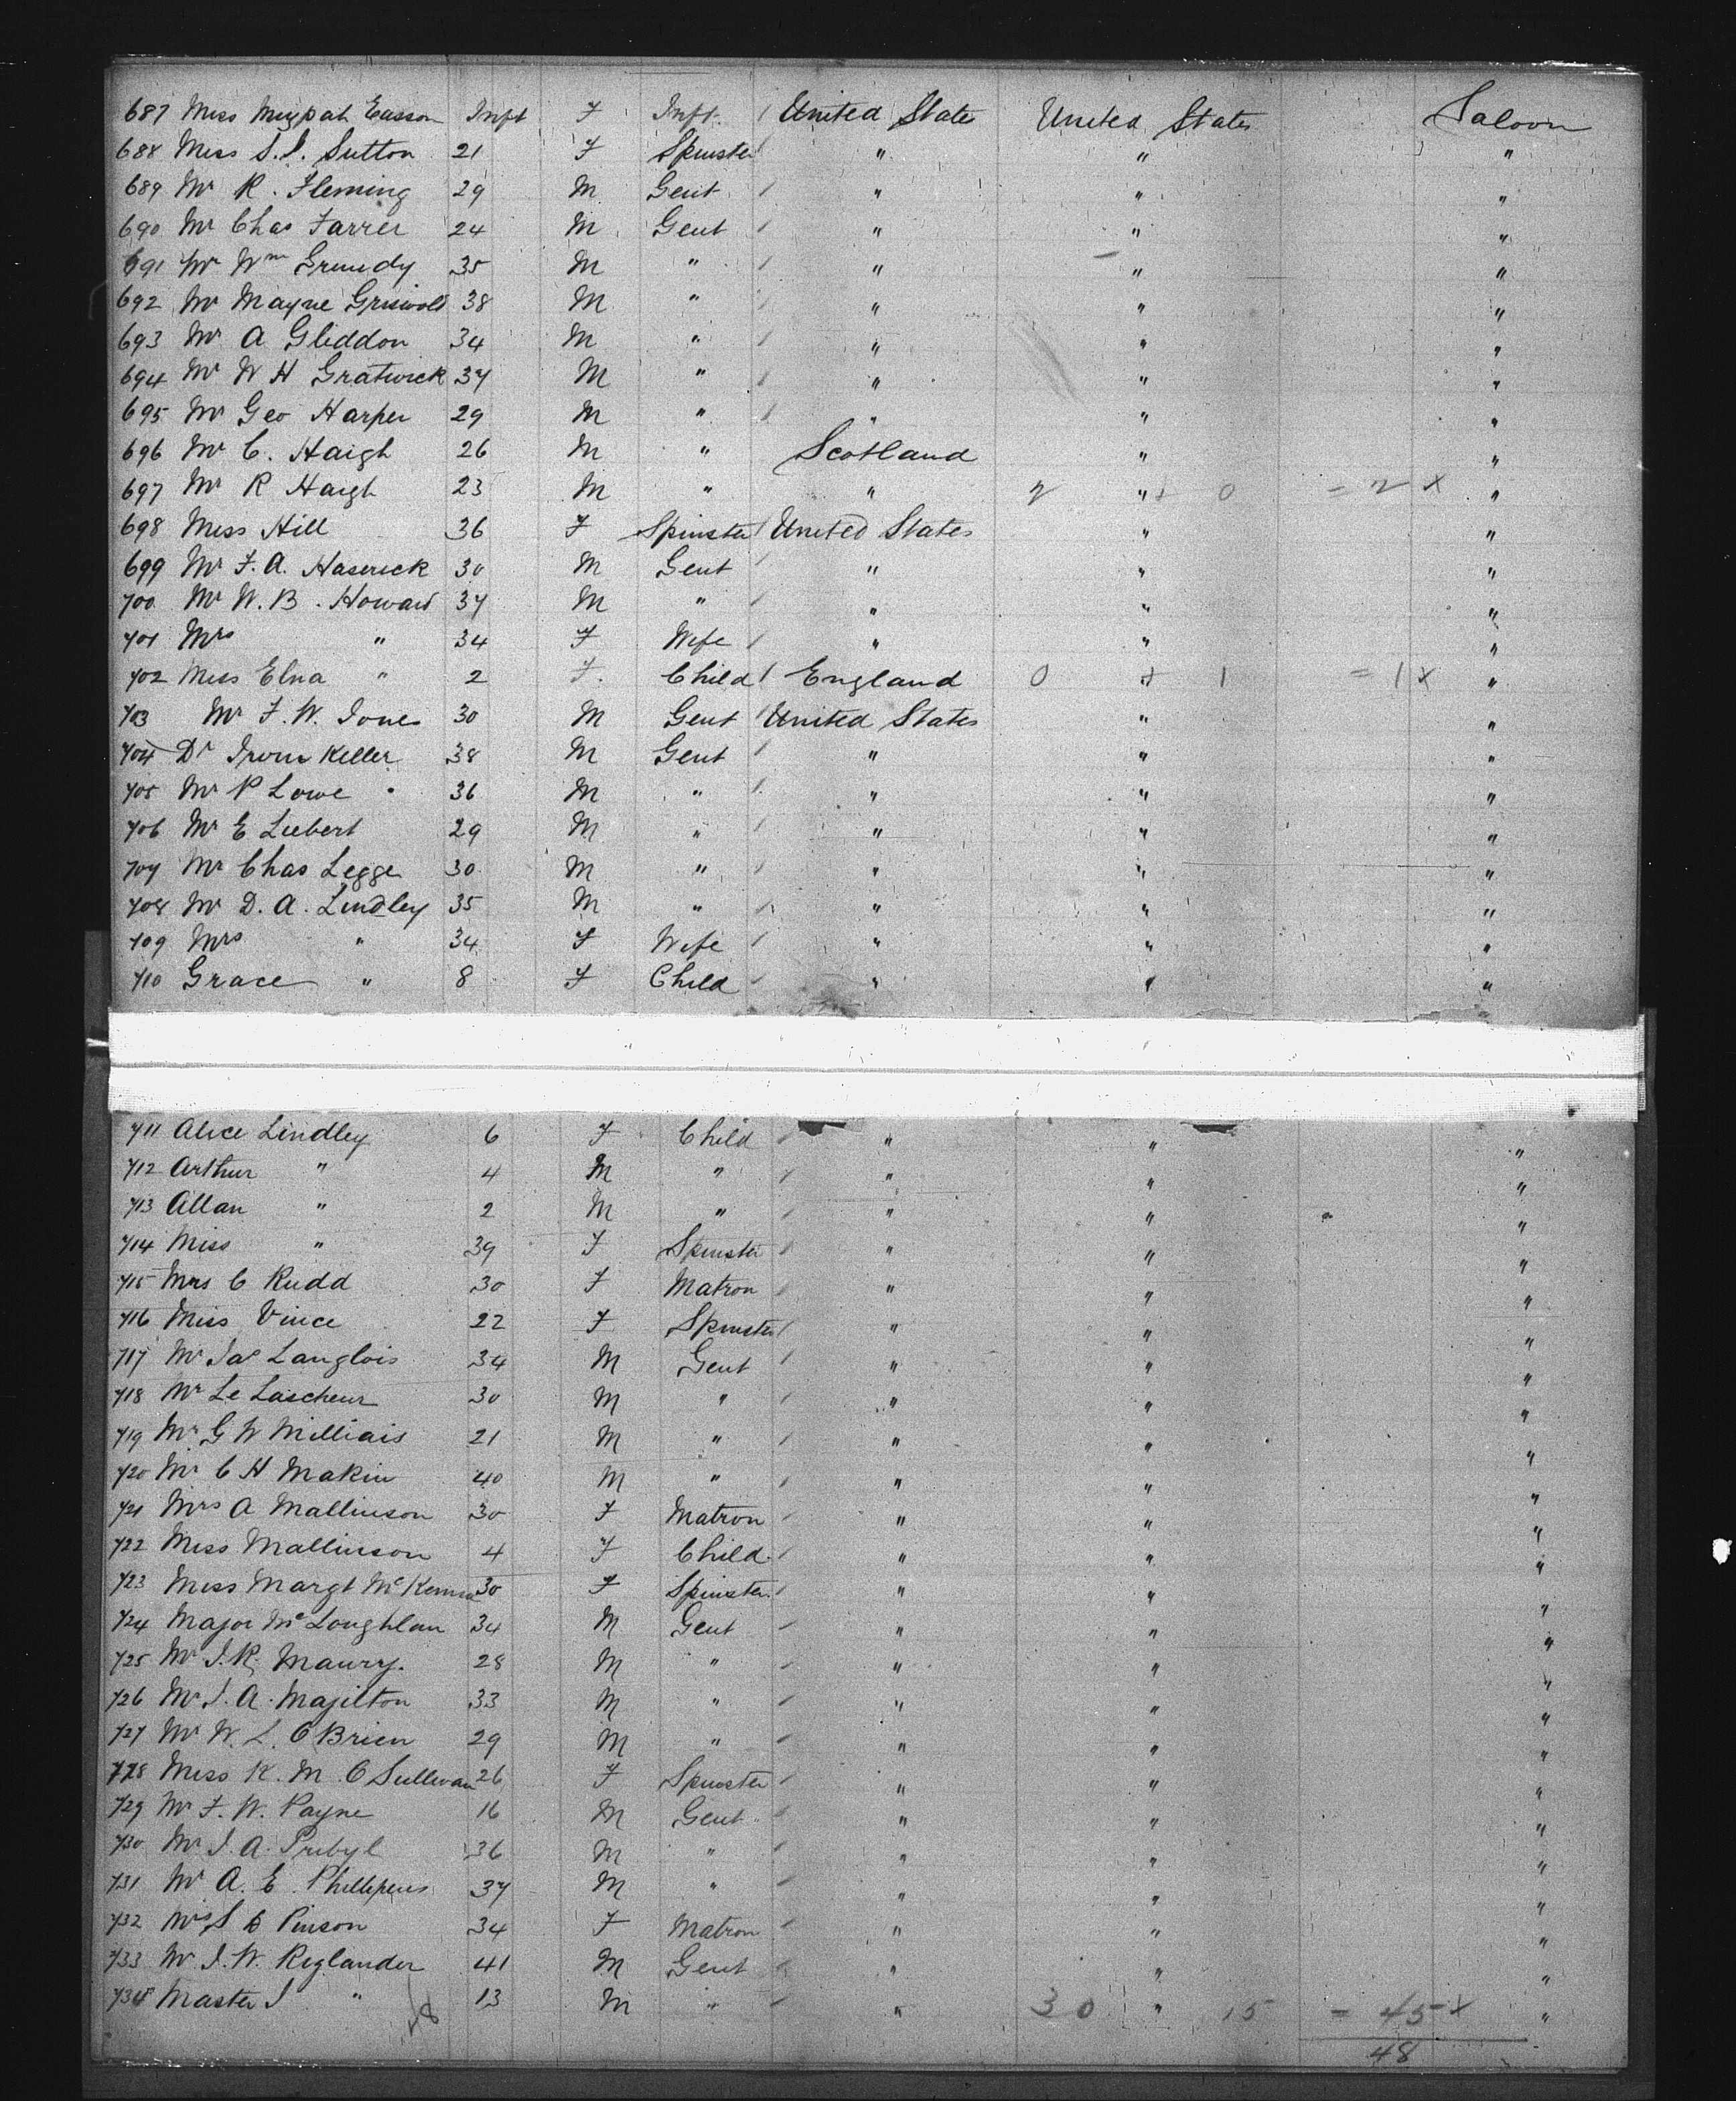 687 Miss Mizpah Easson Inft F Inft. / United States United States Saloon
688 Miss S. J. Sutton 21 F Spinster / " " "
689 Mr R. Fleming 29 M Gent / " " "
690 Mr Chas Farrer 24 M Gent / " " "
691 Mr Wm Grundy 35 M " / " " "
692 Mr Mayne Griswold 38 M " / " " "
693 Mr A Gliddon 34 M " / " " "
694 Mr W H Gratwick 37 M " / " " "
695 Mr Geo Harper 29 M " / " " "
696 Mr C. Haigh 26 M " Scotland " "
697 Mr R Haigh 23 M " " 2 " + 0 = 2 x "
698 Miss Hill 36 F Spinster / United States " "
699 Mr F. A. Haserick 30 M Gent / " " "
700 Mr W. B. Howard 37 M " / " " "
701 Mrs " 34 F Wife / " " "
702 Miss Elna " 2 F. Child / England 0 + 1 = 1 x "
703 Mr F. W. Jones 30 M Gent / United States " "
704 Dr Irvin Keller 38 M Gent / " " "
705 Mr P Lowe 36 M " / " " "
706 Mr E Luebert 29 M " / " " "
707 Mr Chas Legge 30 M " / " " "
708 Mr D. A. Lindley 35 M " / " " "
709 Mrs " 34 F Wife / " " "
710 Grace " 8 F Child / " " "
711 Alice Lindley 6 F Child / " " "
712 Arthur " 4 M " / " " "
713 Allan " 2 M " / " " "
714 Miss " 39 F Spinster / " " "
715 Mrs C Rudd 30 F Matron / " " "
716 Miss Vince 22 F Spinster / " " "
717 Mr Jas Langlois 34 M Gent / " " "
718 Mr Le Lascheur 30 M " / " " "
719 Mr G W Milliais 21 M " / " " "
720 Mr C H Makin 40 M " / " " "
721 Mrs A Mallinson 30 F Matron / " " "
722 Miss Mallinson 4 F Child / " " "
723 Miss Margt McKenna 30 F Spinster / " " "
724 Major McLoughlan 34 M Gent / " " "
725 Mr J. R. Maury. 28 M " / " " "
726 Mr J. A. Majilton 33 M " / " " "
727 Mr W. L. O'Brien 29 M " / " " "
728 Miss K. M. O'Sullivan 26 F Spinster / " " "
729 Mr F. W. Payne 16 M Gent / " " "
730 Mr J. A. Pribyl 36 M " / " " "
731 Mr A. E. Phillipens 37 M " / " " "
732 Mrs S C Pinson 34 F Matron / " " "
733 Mr J. W. Reglander 41 M Gent / " " "
734 Master J " 13 M " / " 30 " 15 = 45 x "
48 48